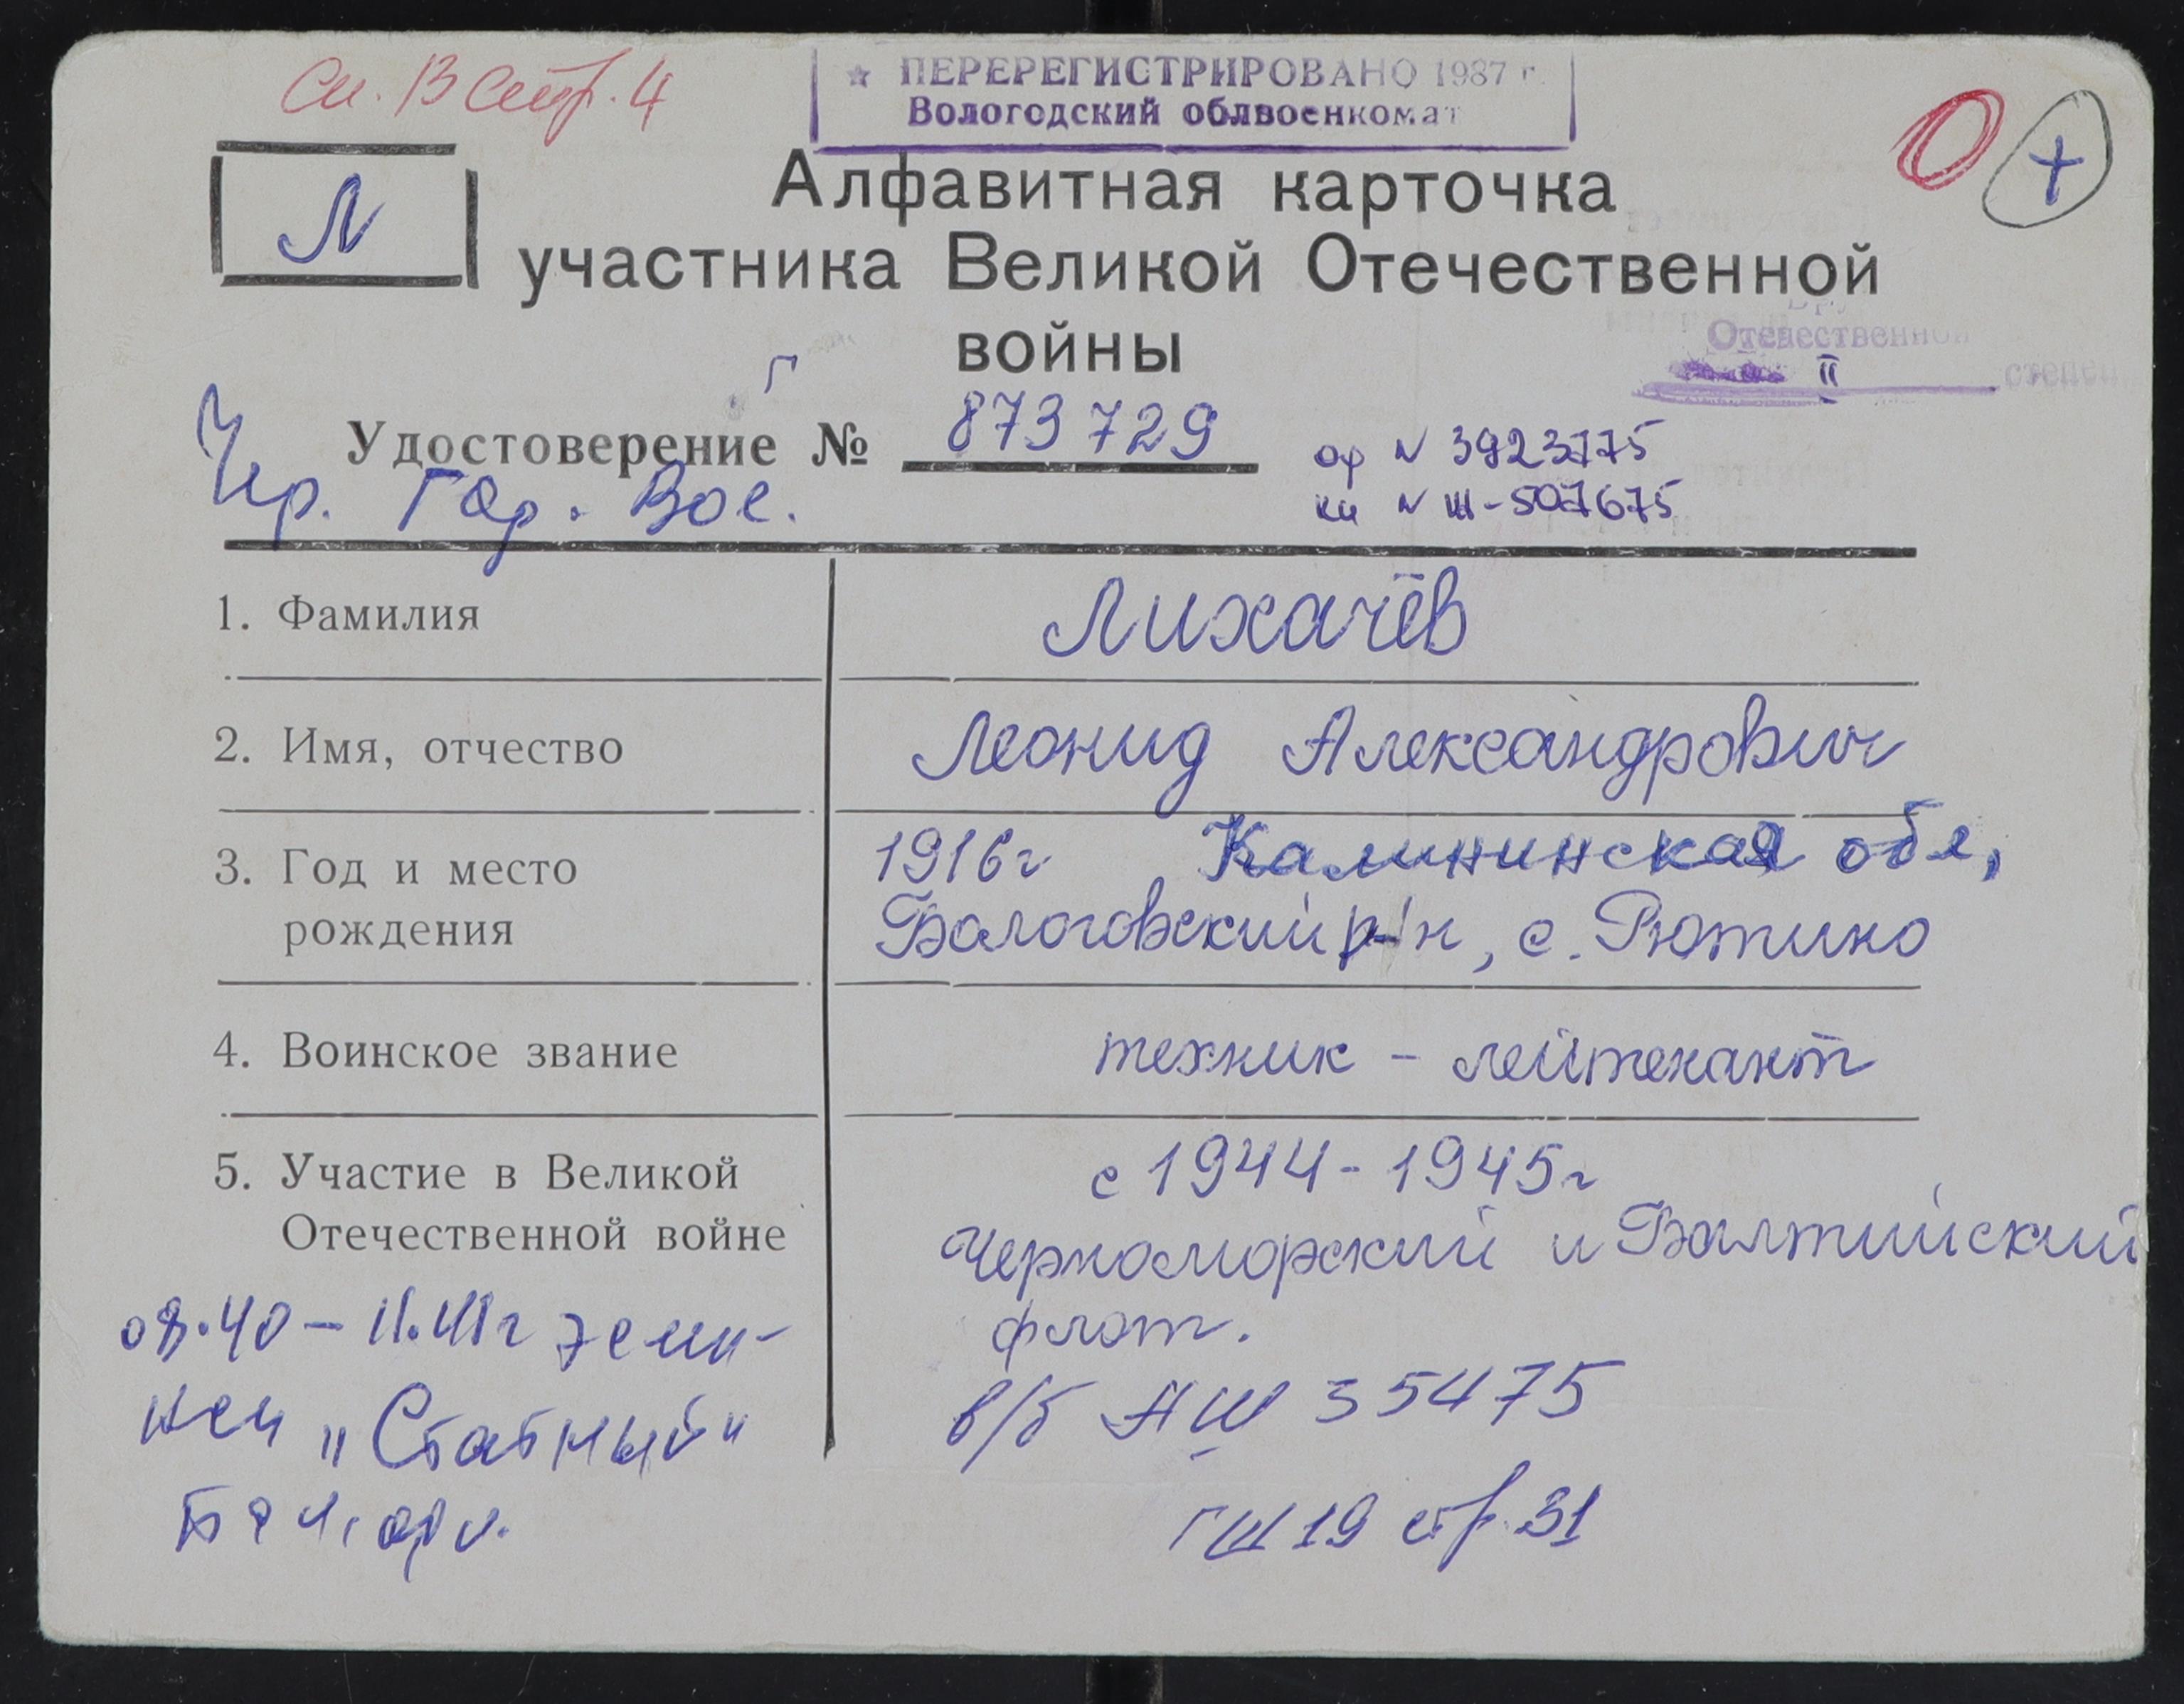 Сп. 13 стр. 4
ПЕРЕРЕГИСТРИРОВАНО 1987 г.
Вологодский облвоенкомат
Л
Алфавитная карточка
участника Великой Отечественной
войны
Отечественной
II
степен
Удостоверение № 873729
Г
Чер. Гор. Вое.
ор № 3923775
кн № Ш-507675
1. Фамилия Лихачёв
2. Имя, отчество Леонид Александрович
3. Год и место 1916г Калининская обл,
рождения Бологовский р-н, с. Рютино
4. Воинское звание техник - лейтенант
5. Участие в Великой с 1944-1945г
Отечественной войне Черноморский и Балтийский
флот.
08.40 - 11.41г эсми-
нец "Статный"
Бал.
в/б АШ 35475
ГШ 19 стр. 31